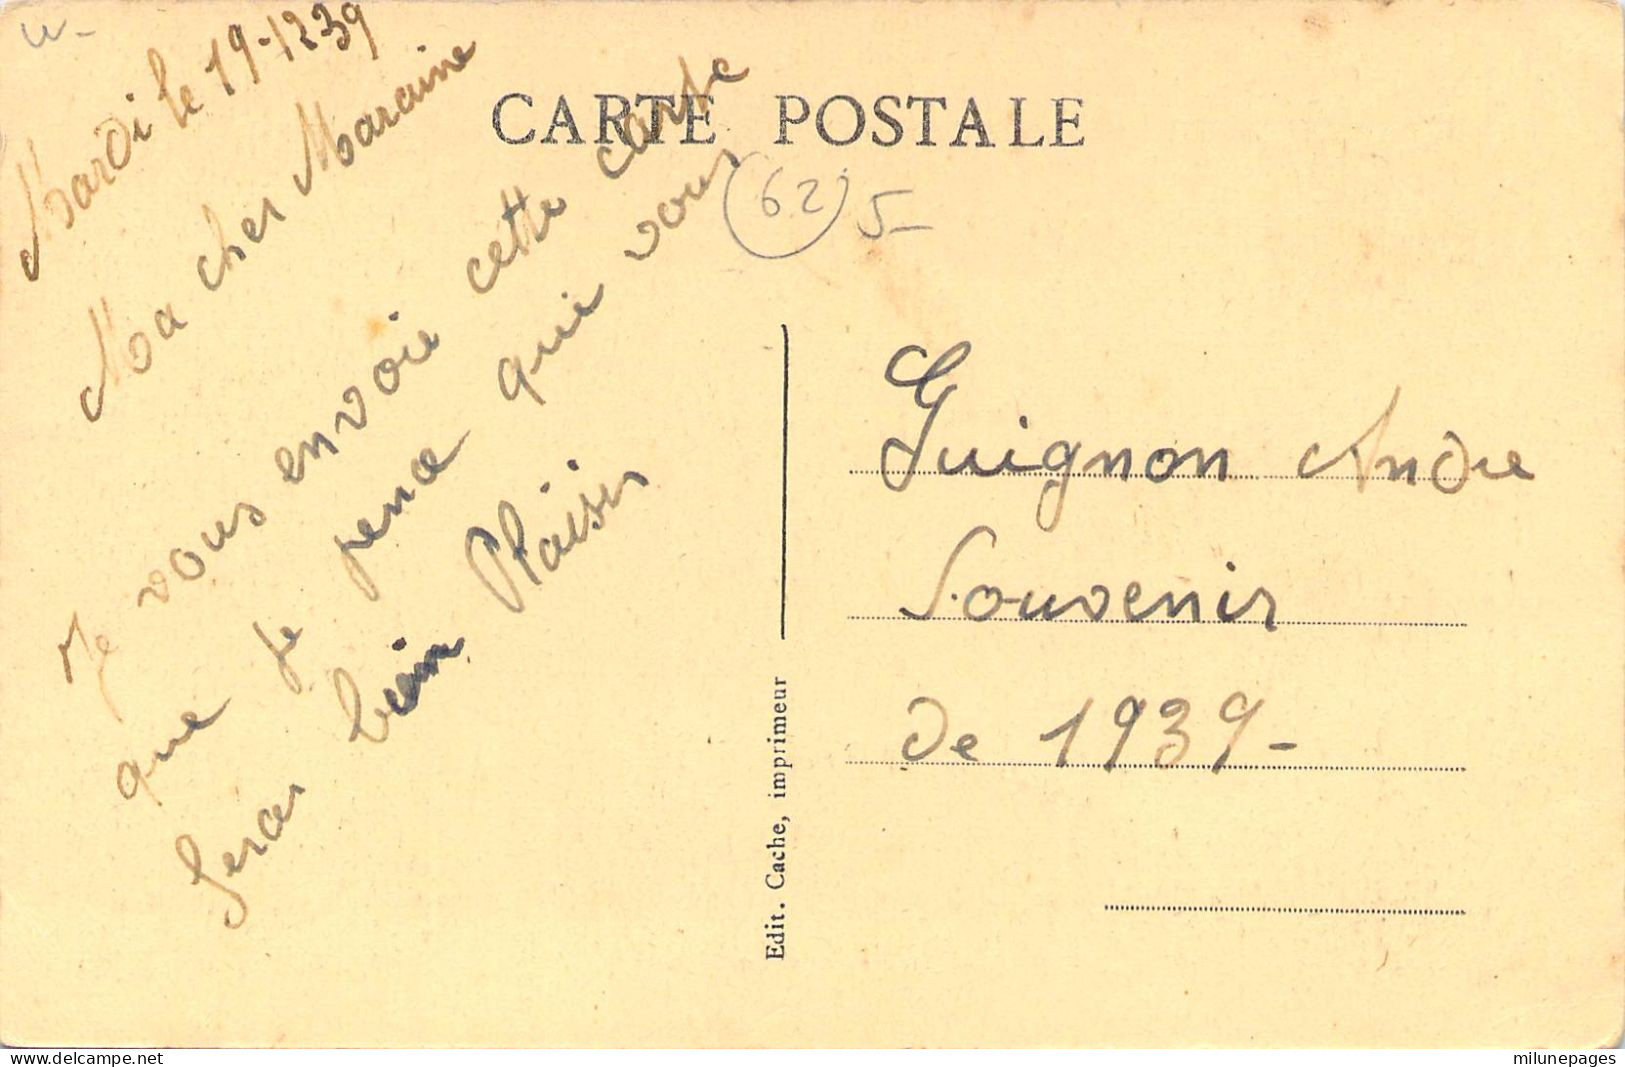 CARTE POSTALE
Mardi le 19-12 39
Ma cher Maraine
Je vous envoie cette carte
que je pence qui vous
seras bien Plaisir
(62) 5-
Guignon Andre
Souvenir
de 1939-
Edit. Cache, imprimeur
www.delcampe.net
milunepages